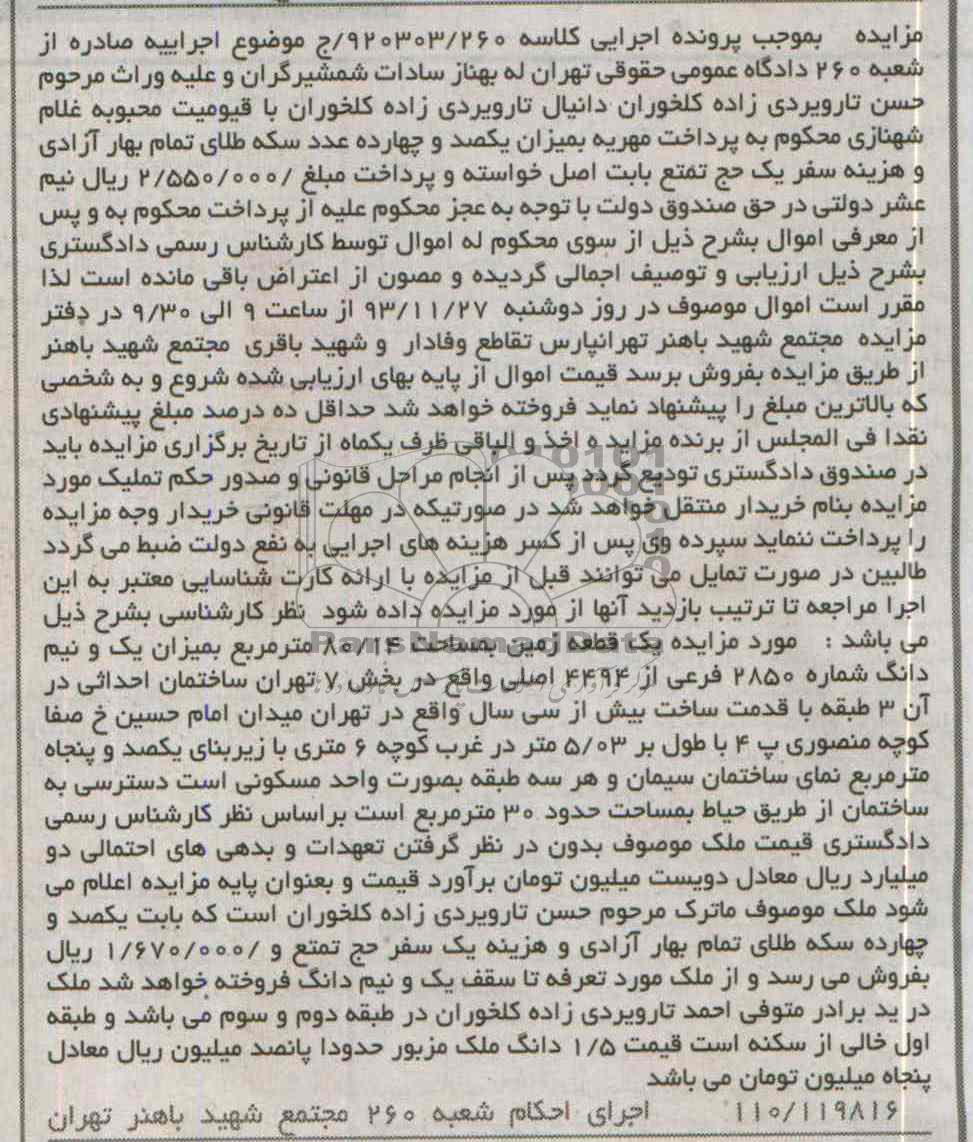 مزایده بموجب پرونده اجرایی کلاسه ۹۲۰۳۰۳/۲۶۰/ج موضوع اجراییه صادره از
شعبه ۲۶۰ دادگاه عمومی حقوقی تهران له بهناز سادات شمشیرگران و علیه وراث مرحوم
حسن تارویردی زاده کلخوران دانیال تارویردی زاده کلخوران با قیومیت محبوبه غلام
شهنازی محکوم به پرداخت مهریه بمیزان یکصد و چهارده عدد سکه طلای تمام بهار آزادی
و هزینه سفر یک حج تمتع بابت اصل خواسته و پرداخت مبلغ /۲/۵۵۰/۰۰۰ ریال نیم
عشر دولتی در حق صندوق دولت با توجه به عجز محکوم علیه از پرداخت محکوم به و پس
از معرفی اموال بشرح ذیل از سوی محکوم له اموال توسط کارشناس رسمی دادگستری
بشرح ذیل ارزیابی و توصیف اجمالی گردیده و مصون از اعتراض باقی مانده است لذا
مقرر است اموال موصوف در روز دوشنبه ۹۳/۱۱/۲۷ از ساعت ۹ الی ۹/۳۰ در دفتر
مزایده مجتمع شهید باهنر تهرانپارس تقاطع وفادار و شهید باقری مجتمع شهید باهنر
از طریق مزایده بفروش برسد قیمت اموال از پایه بهای ارزیابی شده شروع و به شخصی
که بالاترین مبلغ را پیشنهاد نماید فروخته خواهد شد حداقل ده درصد مبلغ پیشنهادی
نقدا فی المجلس از برنده مزایده اخذ و الباقی ظرف یکماه از تاریخ برگزاری مزایده باید
در صندوق دادگستری تودیع گردد پس از انجام مراحل قانونی و صدور حکم تملیک مورد
مزایده بنام خریدار منتقل خواهد شد در صورتیکه در مهلت قانونی خریدار وجه مزایده
را پرداخت ننماید سپرده وی پس از کسر هزینه های اجرایی به نفع دولت ضبط می گردد
طالبین در صورت تمایل می توانند قبل از مزایده با ارائه کارت شناسایی معتبر به این
اجرا مراجعه تا ترتیب بازدید آنها از مورد مزایده داده شود نظر کارشناسی بشرح ذیل
می باشد : مورد مزایده یک قطعه زمین بمساحت ۸۰/۱۴ مترمربع بمیزان یک و نیم
دانگ شماره ۲۸۵۰ فرعی از ۴۴۹۴ اصلی واقع در بخش ۷ تهران ساختمان احداثی در
آن ۳ طبقه با قدمت ساخت بیش از سی سال واقع در تهران میدان امام حسین خ صفا
کوچه منصوری پ ۴ با طول بر ۵/۰۳ متر در غرب کوچه ۶ متری با زیربنای یکصد و پنجاه
مترمربع نمای ساختمان سیمان و هر سه طبقه بصورت واحد مسکونی است دسترسی به
ساختمان از طریق حیاط بمساحت حدود ۳۰ مترمربع است براساس نظر کارشناس رسمی
دادگستری قیمت ملک موصوف بدون در نظر گرفتن تعهدات و بدهی های احتمالی دو
میلیارد ریال معادل دویست میلیون تومان برآورد قیمت و بعنوان پایه مزایده اعلام می
شود ملک موصوف ماترک مرحوم حسن تارویردی زاده کلخوران است که بابت یکصد و
چهارده سکه طلای تمام بهار آزادی و هزینه یک سفر حج تمتع و /۱/۶۷۰/۰۰۰ ریال
بفروش می رسد و از ملک مورد تعرفه تا سقف یک و نیم دانگ فروخته خواهد شد ملک
در ید برادر متوفی احمد تارویردی زاده کلخوران در طبقه دوم و سوم می باشد و طبقه
اول خالی از سکنه است قیمت ۱/۵ دانگ ملک مزبور حدودا پانصد میلیون ریال معادل
پنجاه میلیون تومان می باشد
۱۱۰/۱۱۹۸۱۶ اجرای احکام شعبه ۲۶۰ مجتمع شهید باهنر تهران
ParsNamadData